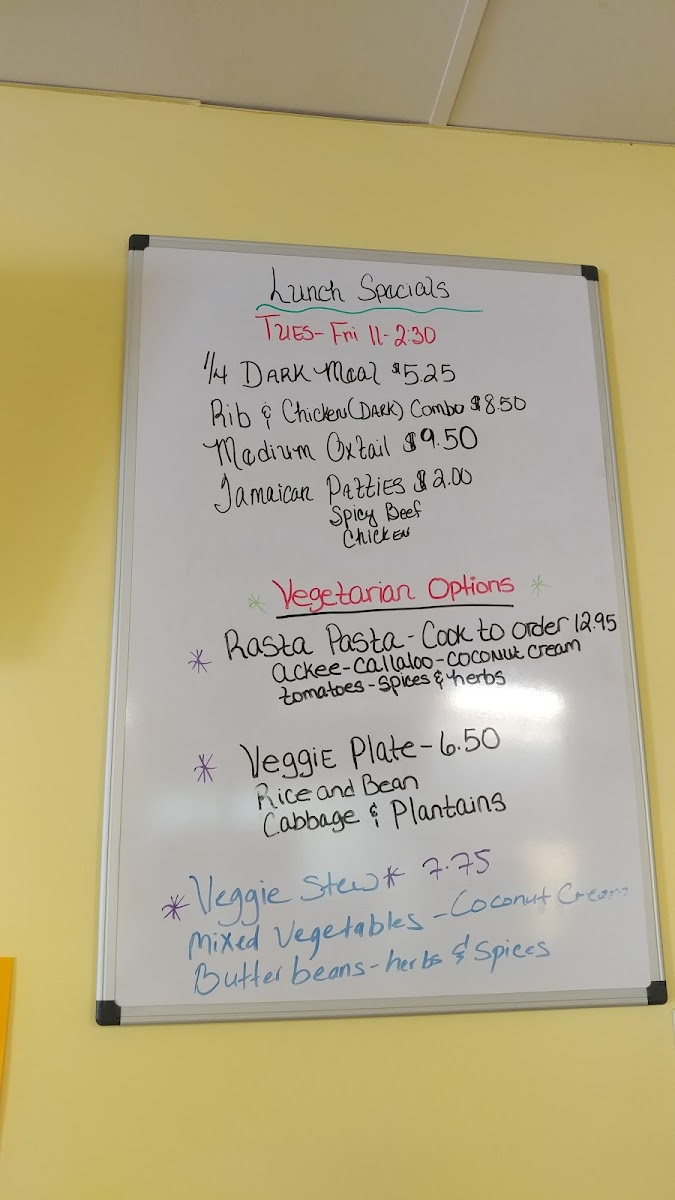 Lunch Specials
TUES-Fri 11-2:30
1/4 DARK Meal $5.25
Rib & Chicken (DARK) Combo $8.50
Medium Oxtail $9.50
Jamaican Patties $2.00
Spicy Beef
Chicken
* Vegetarian Options *
* Rasta Pasta - Cook to order 12.95
ackee-callaloo-coconut cream
tomatoes-spices & herbs
* Veggie Plate - 6.50
Rice and Bean
Cabbage & Plantains
* Veggie Stew * 7.75
Mixed Vegetables - Coconut Cream
Butter beans - herbs & Spices